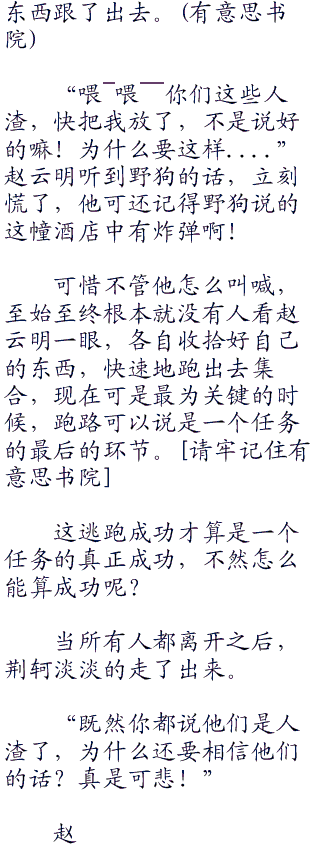 东西跟了出去。(有意思书
院)
“喂¯喂¯¯你们这些人
渣，快把我放了，不是说好
的嘛！为什么要这样....”
赵云明听到野狗的话，立刻
慌了，他可还记得野狗说的
这幢酒店中有炸弹啊！
可惜不管他怎么叫喊，
至始至终根本就没有人看赵
云明一眼，各自收拾好自己
的东西，快速地跑出去集
合，现在可是最为关键的时
候，跑路可以说是一个任务
的最后的环节。[请牢记住有
意思书院]
这逃跑成功才算是一个
任务的真正成功，不然怎么
能算成功呢？
当所有人都离开之后，
荆轲淡淡的走了出来。
“既然你都说他们是人
渣了，为什么还要相信他们
的话？真是可悲！”
赵